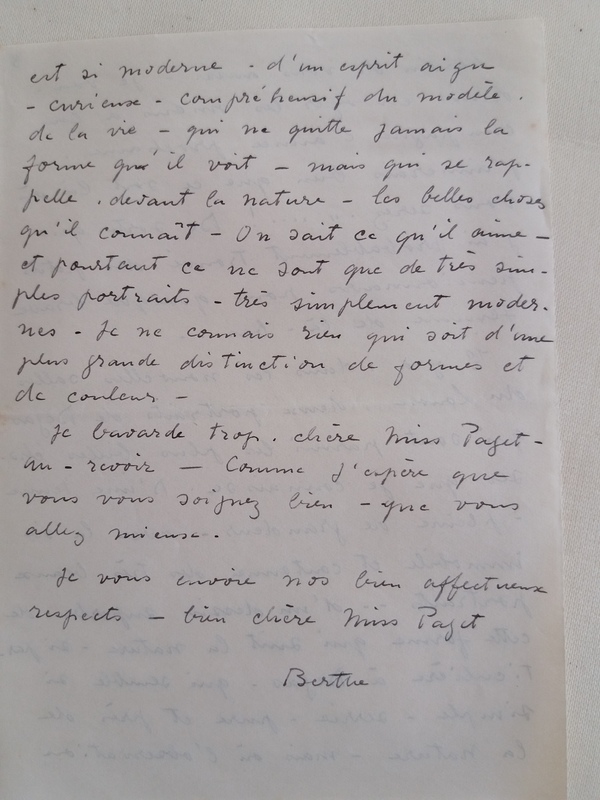 est si moderne - d'un esprit aigu
- curieux - compréhensif du modèle.
de la vie - qui ne quitte jamais la
forme qu'il voit - mais qui se rap-
pelle. devant la nature - les belles choses
qu'il connaît - On sait ce qu'il aime -
et pourtant ce ne sont que de très sim-
ples portraits - très simplement moder-
nes - Je ne connais rien qui soit d'une
plus grande distinction de formes et
de couleur -
Je bavarde trop. chère Miss Paget -
au-revoir - Comme j'espère que
vous vous soignez bien - que vous
allez mieux.
Je vous envoie nos bien affectueux
respects - bien chère Miss Paget
Berthe